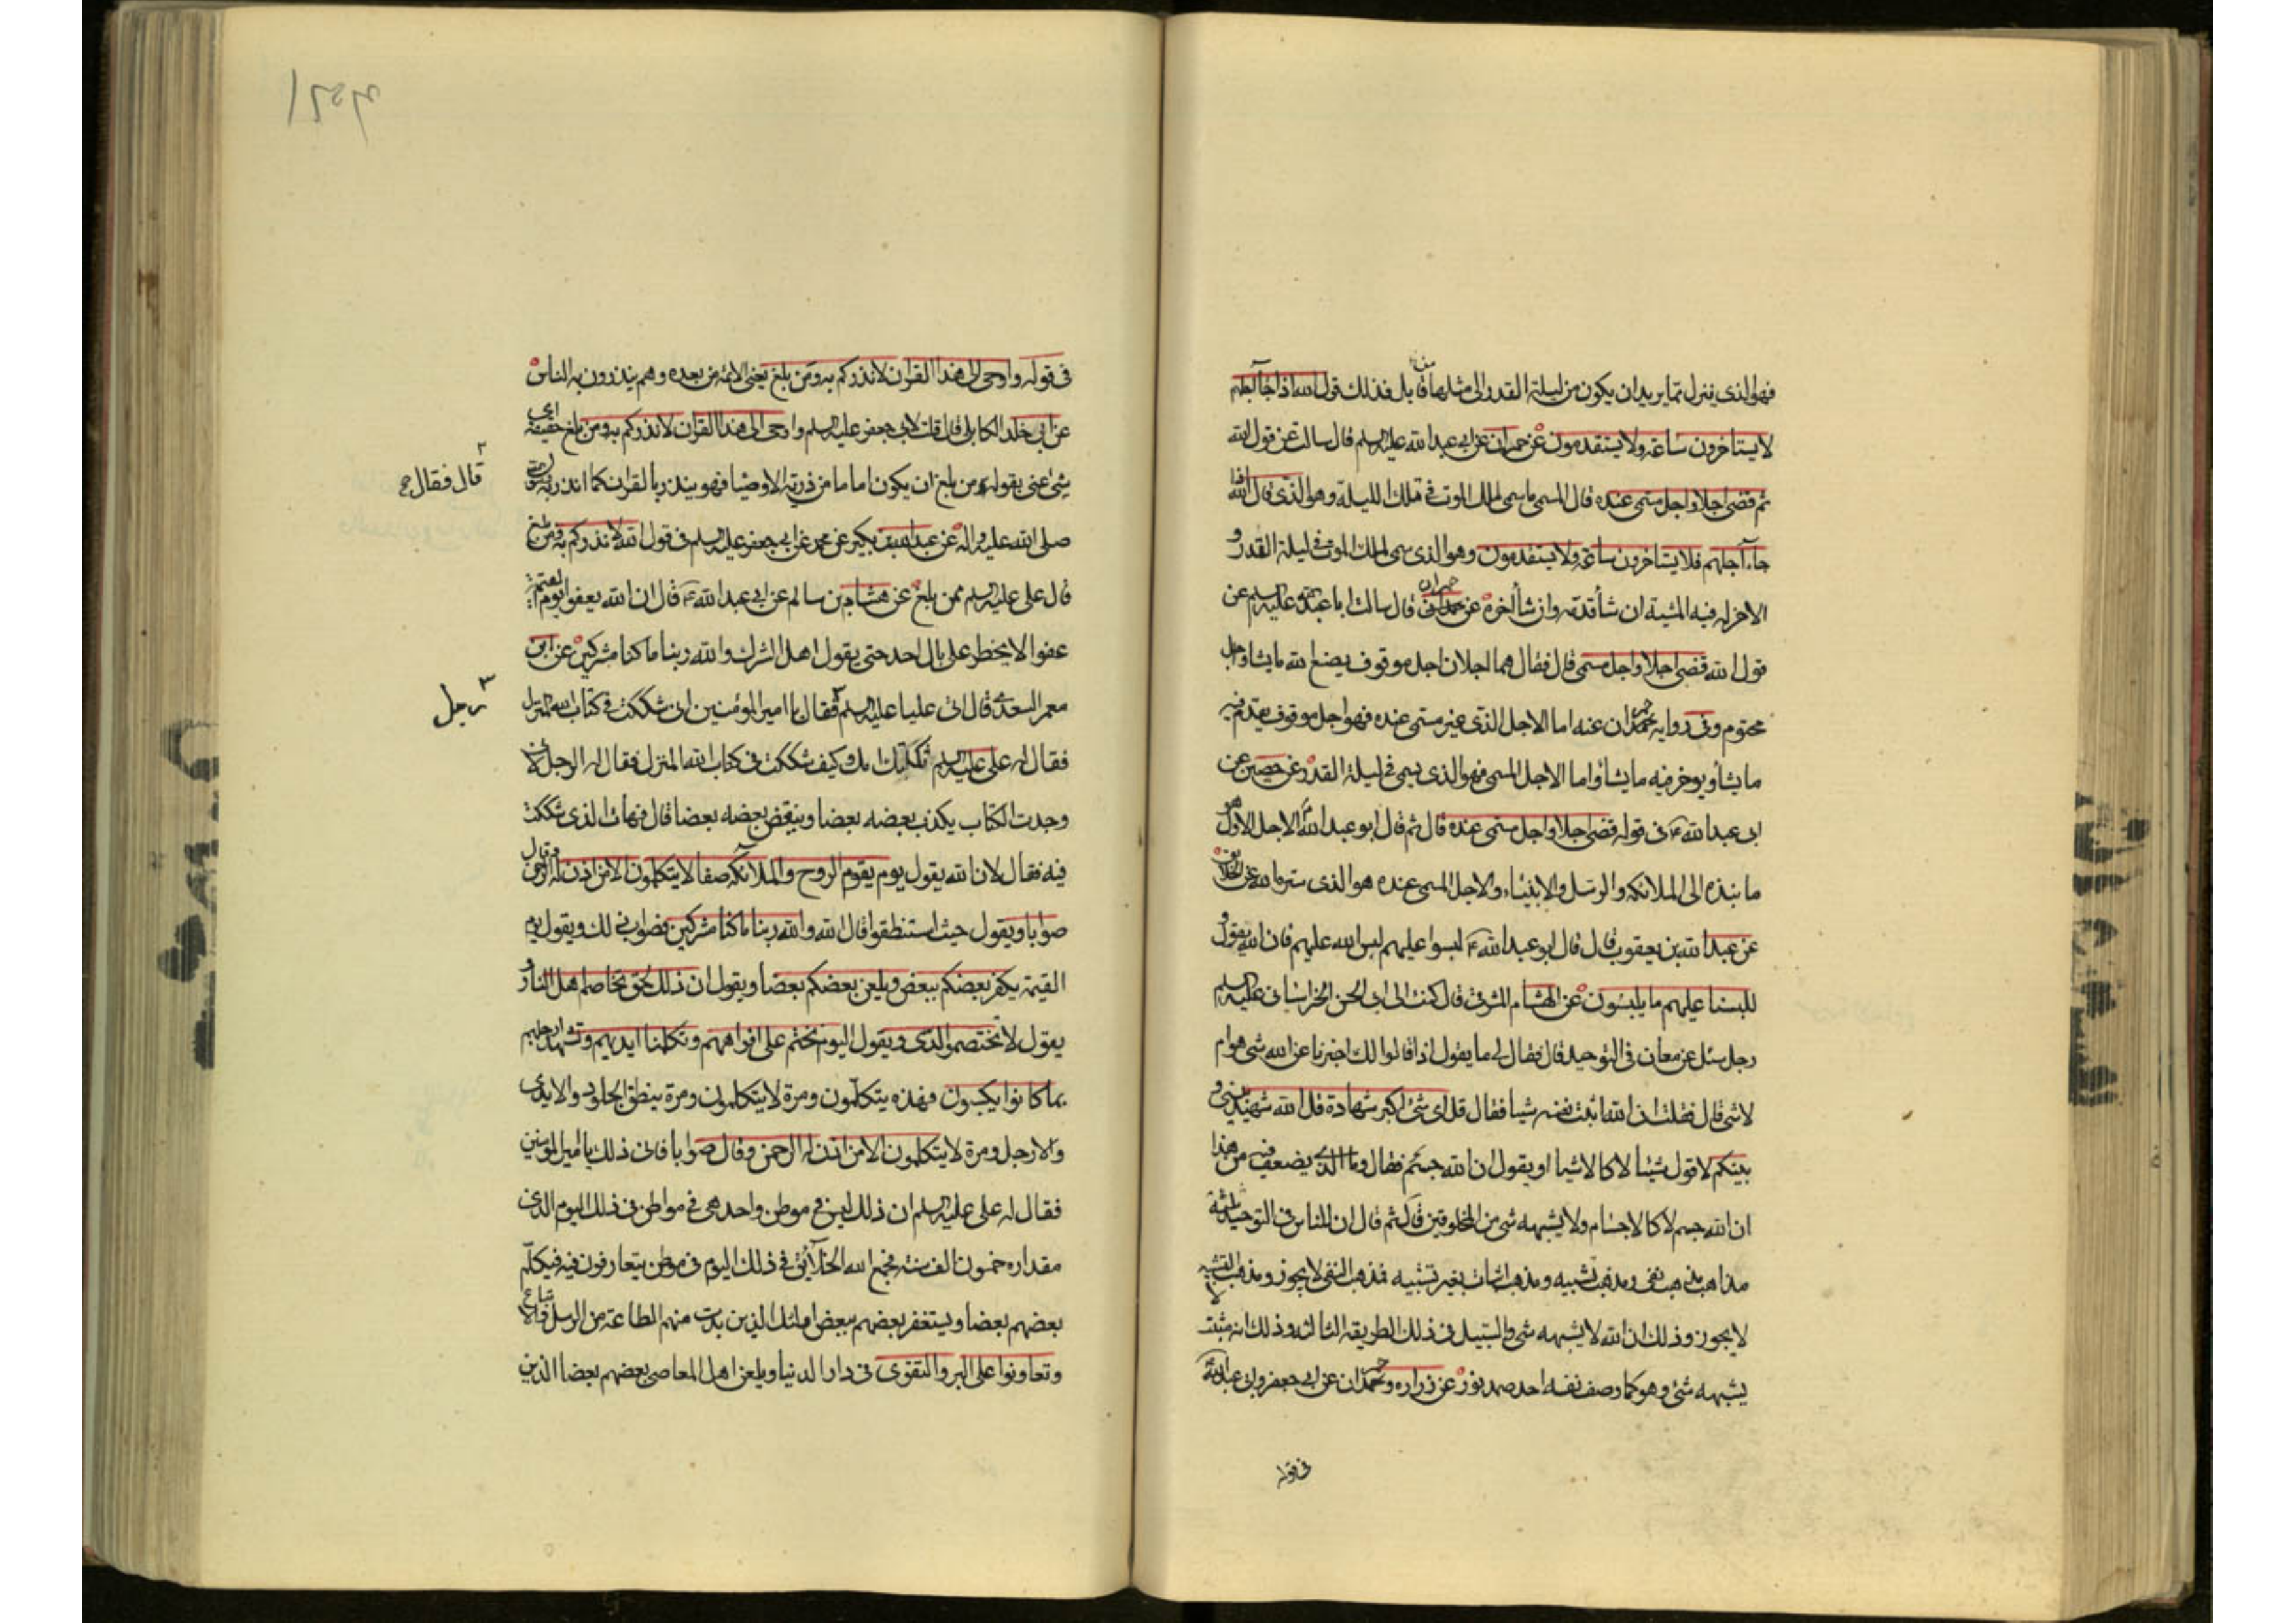 فهو الذى ينزل مما يريد ان يكون من ليلة القدر الى مثلها من قابل فذلك قول الله اذا جآ اجلهم
لا يستاخرون ساعة ولا يستقدمون عن حمران عن ابى عبد الله عليه السلم قال سالت عن قول الله
ثم قضى اجلا واجل مسمى عنده قال المسمى ما سمى لملك الموت فى تلك الليلة وهو الذى قال الله اذا
جاء اجلهم فلا يستاخرون ساعة ولا يستقدمون وهو الذى سمى لملك الموت فى ليلة القدر و
الاخر له فيه المشية ان شأ قدمه وان شأ اخره عن حمران قال سالت ابا عبد الله عليه السلم عن
قول الله قضى اجلا واجل مسمى قال فقال هما اجلان اجل موقوف يصنع الله ما يشاء واجل
محتوم وفى رواية حمران عنه اما الاجل الذى غير مسمى عنده فهو اجل موقوف يقدم فيه
ما يشأ ويوخر فيه ما يشأ واما الاجل المسمى فهو الذى يسمى فى ليلة القدر عن حصين عن
ابى عبد الله ع فى قوله قضى اجلا واجل مسمى عنده قال ثم قال ابو عبد الله الاجل الاول هو
ما نبذه الى الملائكه والرسل والانبياء والاجل المسمى عنده هو الذى ستره الله عن الخلايق
عن عبد الله بن يعقوب قال قال ابو عبد الله ع لبسوا عليهم لبس الله عليهم فان الله يقول و
للبسنا عليهم ما يلبسون عن الهشام المشرقى قال كنت الى ابى الحسن الخراسانى عليه السلم
رجل سئل عن معان فى التوحيد قال فقال لى ما يقول اذا قالوا لك اخبرنا عن الله شى هو ام
لا شى قال فقلت ان الله اثبت نفسه شيا فقال قل اى شئ اكبر شهادة قل الله شهيد بينى و
بينكم لا قول شيئا لا كالاشيا او يقول ان الله جسم فقال وما الذى يضعف فيه من هذا
ان الله جسم لا كالاجسام ولا يشبهه شى من المخلوقين قال ثم قال ان للناس فى التوحيد ثلثة
مذاهب مذهب نفى ومذهب تشبيه ومذهب اثبات بغير تشبيه فمذهب النفى لا يجوز ومذهب التشبيه لا
لا يجوز وذلك ان الله لا يشبهه شى والسبيل فى ذلك الطريقه الثالثه وذلك انه مثبت
يشبهه شئ وهو كما وصف نفسه احد صمد نور عن زراره وحمران عن ابى جعفر وابى عبد الله
فى قوله
فى قوله واوحى الى هذا القرآن لانذركم به ومن بلغ يعنى الائمة من بعده وهم ينذرون به الناس
عن ابى خلد الكابلى قال قلت لابى جعفر عليه السلم واوحى الى هذا القرآن لانذركم به ومن بلغ حقيقة اى
شئ عنى بقوله ومن بلغ ان يكون اماما من ذرية الاوصيا فهو ينذر بالقران كما انذر به رسول
قال فقال ح
صلى الله عليه واله عن عبد الله بن بكير عن محمد عن ابى جعفر عليه السلم فى قول الله لانذركم به ومن بلغ
قال على عليه السلم ممن بلغ عن هشام بن سالم عن ابى عبد الله ع قال ان الله يعفو يوم القيمة
عفوا لا يخطر على بال احد حتى يقول اهل الشرك والله ربنا ما كنا مشركين عن ابى
معمر السعدى قال اتى عليا عليه السلم فقال يا امير المومنين انى شككت فى كتاب الله المنزل
رجل
فقال له على عليه السلم ثكلتك امك وكيف شككت فى كتاب الله المنزل فقال له الرجل لانى
وجدت الكتاب يكذب بعضه بعضا وينقض بعضه بعضا قال فهات الذى شككت
فيه فقال لان الله يقول يوم يقوم الروح والملائكه صفا لا يتكلمون الا من اذن له الرحمن وقال
صوابا ويقول حيث استنطقوا قال الله والله ربنا ما كنا مشركين ويقول يوم
القيمة يكفر بعضكم ببعض ويلعن بعضكم بعضا ويقول ان ذلك لحق تخاصم اهل النار و
يقول لا تختصموا لدى ويقول اليوم نختم على افواههم وتكلمنا ايديهم وتشهد ارجلهم
بما كانوا يكسبون فهذه يتكلمون ومرة لا يتكلمون ومرة ينطق الجلود والايدى
والارجل ومرة لا يتكلمون الا من اذن له الرحمن وقال صوابا فانى ذلك يا امير المومنين
فقال له على عليه السلم ان ذلك ليس فى موطن واحد هى فى مواطن فى ذلك اليوم الذى
مقداره خمسون الف سنه فجمع الله الخلآئق فى ذلك اليوم فى موطن يتعارفون فيه فيكلم
بعضهم بعضا ويستغفر بعضهم لبعض اولئك الذين بدت منهم الطاعة من الرسل والاتباع
وتعاونوا على البر والتقوى فى دار الدنيا ويلعن اهل المعاصى بعضهم بعضا الذين